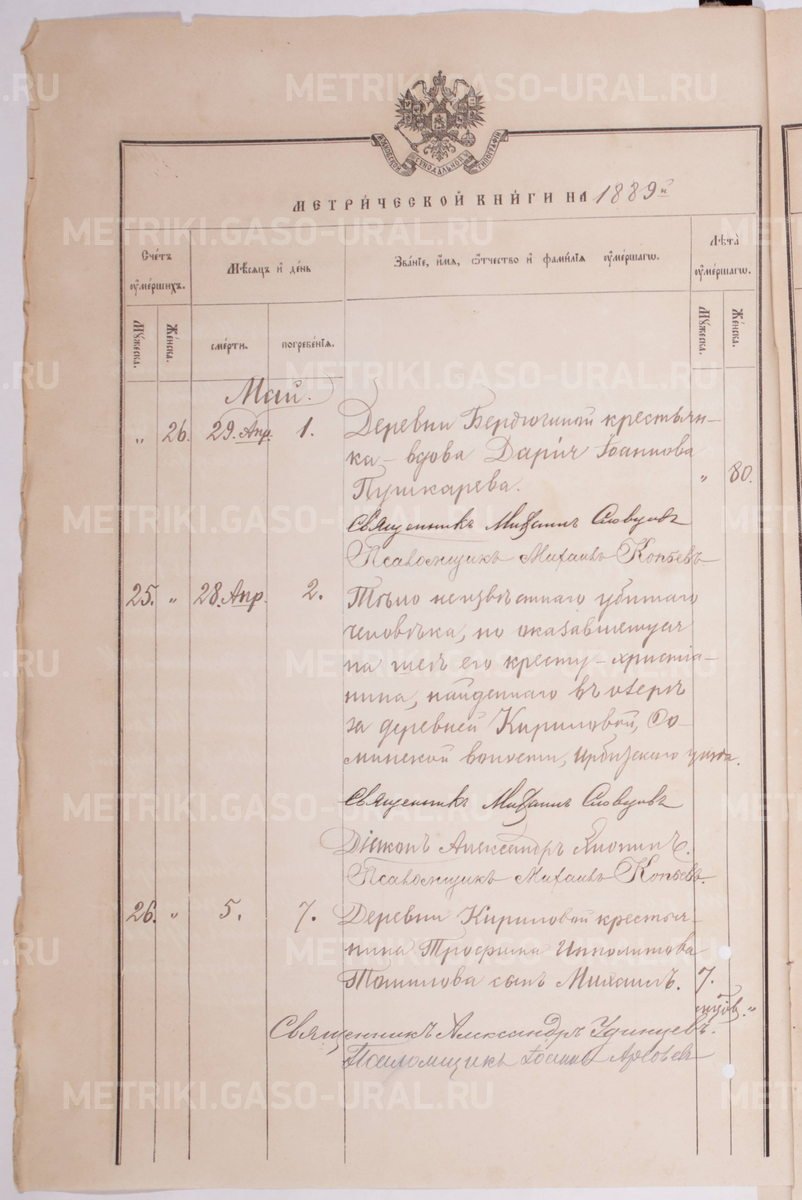 METRIKI.GASO-URAL.RU
МОСКОВСКОЙ СѴНОДАЛЬНОЙ ТИПОГРАФІИ
МЕТРИ́ЧЕСКОЙ КНИ́ГИ НА 1889й
Сче́тъ оумершихъ.
Мѣсяцъ и де́нь
Зва́ніе, и́мя, о́тчество и фами́лія оуме́ршагѡ.
Лѣта̀ оуме́ршагѡ.
Мꙋжеска.
Же́нска.
сме́рти.
погребе́нїѧ.
Мꙋжеска.
Же́нска.
Май.
„ 26. 29. Апр. 1. Деревни Бердюгиной крестьян-
ка – вдова Дарія Іоаннова
Пушкарева. „ 80.
Священникъ Михаилъ Словцовъ
Псаломщикъ Михаилъ Копьевъ
25. „ 28. Апр. 2. Тѣло неизвѣстнаго убитаго
человѣка, по оказавшемуся
на шеѣ его кресту – христіа-
нина, найденнаго въ озерѣ
за деревней Кириловой,
волости, Ирбитскаго уѣзда.
Священникъ Михаилъ Словцовъ
Діаконъ Александръ
Псаломщикъ Михаилъ Копьевъ.
26. „ 5. 7. Деревни Кириловой крестья-
нина Трофима Ипполитова
Томилова сынъ Михаилъ. 7.
„
Священникъ Александръ Удинцевъ.
Псаломщикъ Іоаннъ